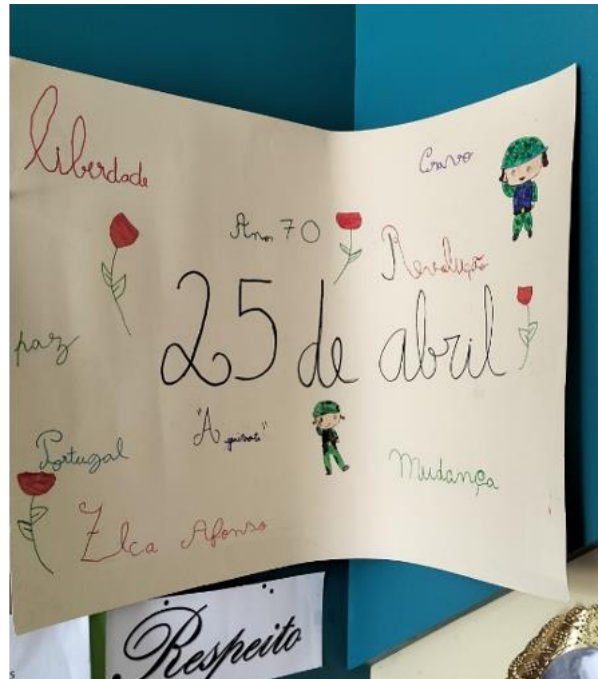 Liberdade
Cravo
Anos 70
Revolução
25 de abril
paz
"A
Portugal
Mudança
Zeca Afonso
Respeito
s